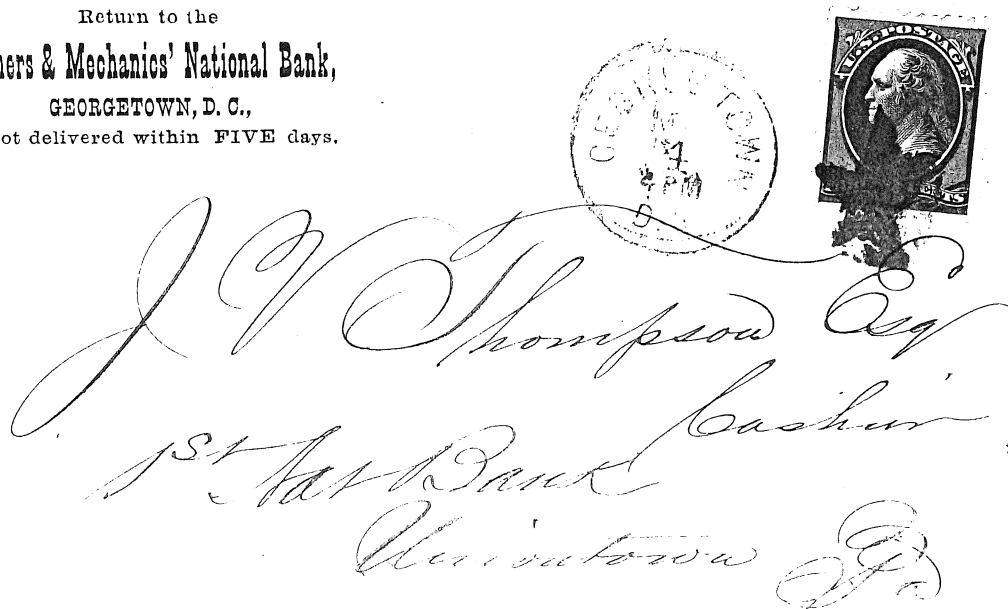 Return to the
ners & Mechanics' National Bank,
GEORGETOWN, D. C.,
ot delivered within FIVE days.
GEORGETOWN
4 PM
D
U.S. POSTAGE
CENTS
J V Thompson Esq
Cashier
1st Nat Bank
Uniontown
Pa